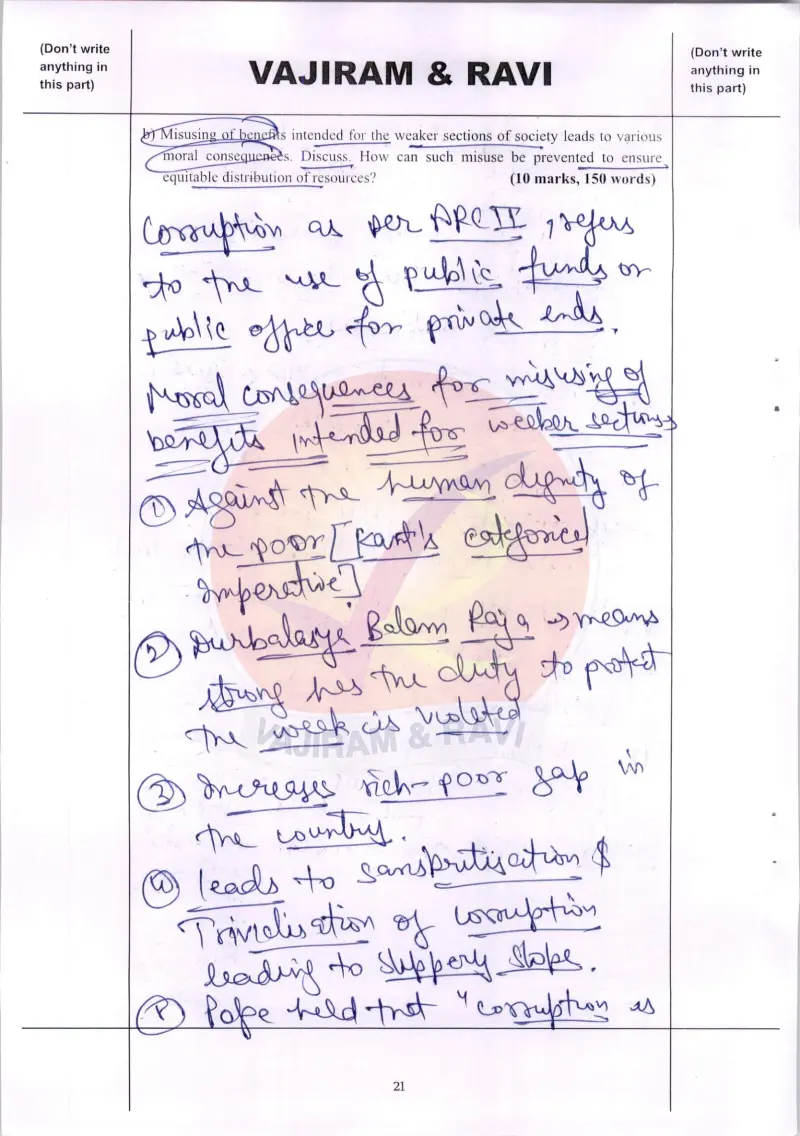 (Don't write
anything in
this part)
VAJIRAM & RAVI
(Don't write
anything in
this part)
b) Misusing of benefits intended for the weaker sections of society leads to various
moral consequences. Discuss. How can such misuse be prevented to ensure
equitable distribution of resources? (10 marks, 150 words)
Corruption as per ARC II, refers
to the use of public funds or
public office for private ends.
Moral consequences for misusing of
benefits intended for weeker sections
① Against the human dignity of
the poor [Kant's categorical
Imperative]
② Durbalasya Balam Raja → means
strong has the duty to protect
the weak is violated
③ Increases rich-poor gap in
the country.
④ leads to sanskritisation &
Trivialisation of corruption
leading to slippery slope.
Pope held that "corruption is
VAJIRAM & RAVI
21